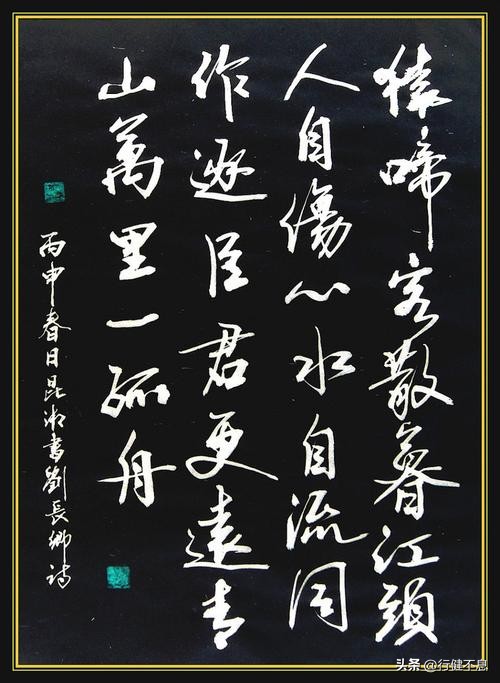 猿啼客散暮江頭
人自傷心水自流同
作逐臣君更遠青
山萬里一孤舟
丙申春日昆湘書劉長卿詩
头条 @行健不息